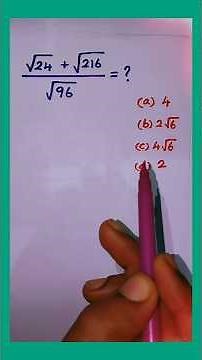 (√24 + √216) / √96 = ?
(a) 4
(b) 2√6
(c) 4√6
(d) 2